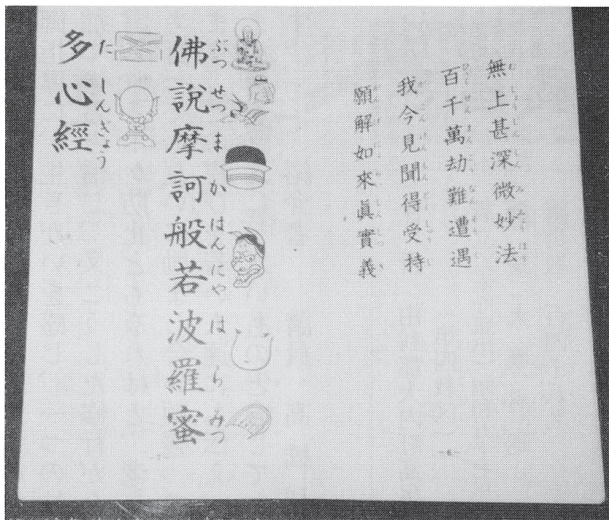 無上甚深微妙法
百千萬劫難遭遇
我今見聞得受持
願解如來眞實義
佛說摩訶般若波羅蜜
ぶつせつまかはんにやはらみつ
多心經
たしんぎょう